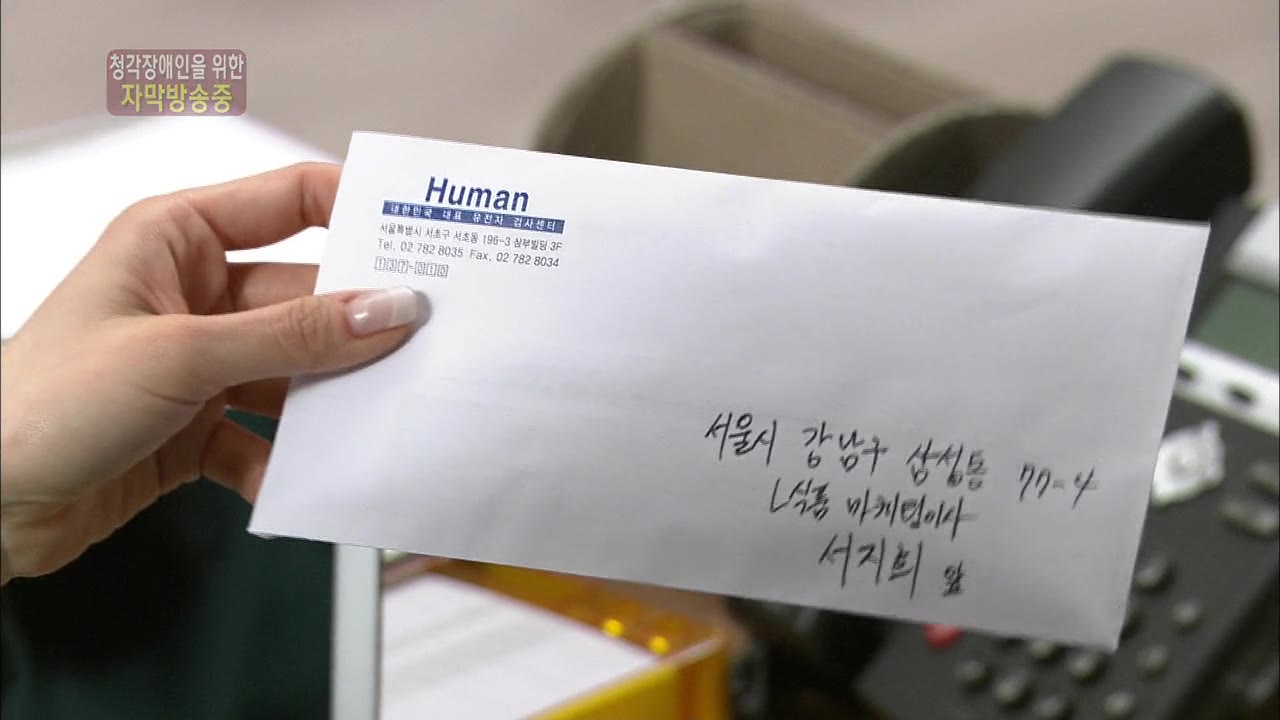 청각장애인을 위한
자막방송중
Human
대한민국 대표 유전자 검사센터
서울특별시 서초구 서초동 196-3 삼부빌딩 3F
Tel. 02 782 8035 Fax. 02 782 8034
137-010
서울시 강남구 삼성동 77-4
L식품 마케팅이사
서지희 앞